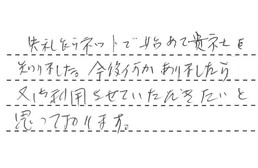 失礼ながらネットで始めて貴社を
知りました。今後何かありましたら
又御利用させていただきたいと
思っております。